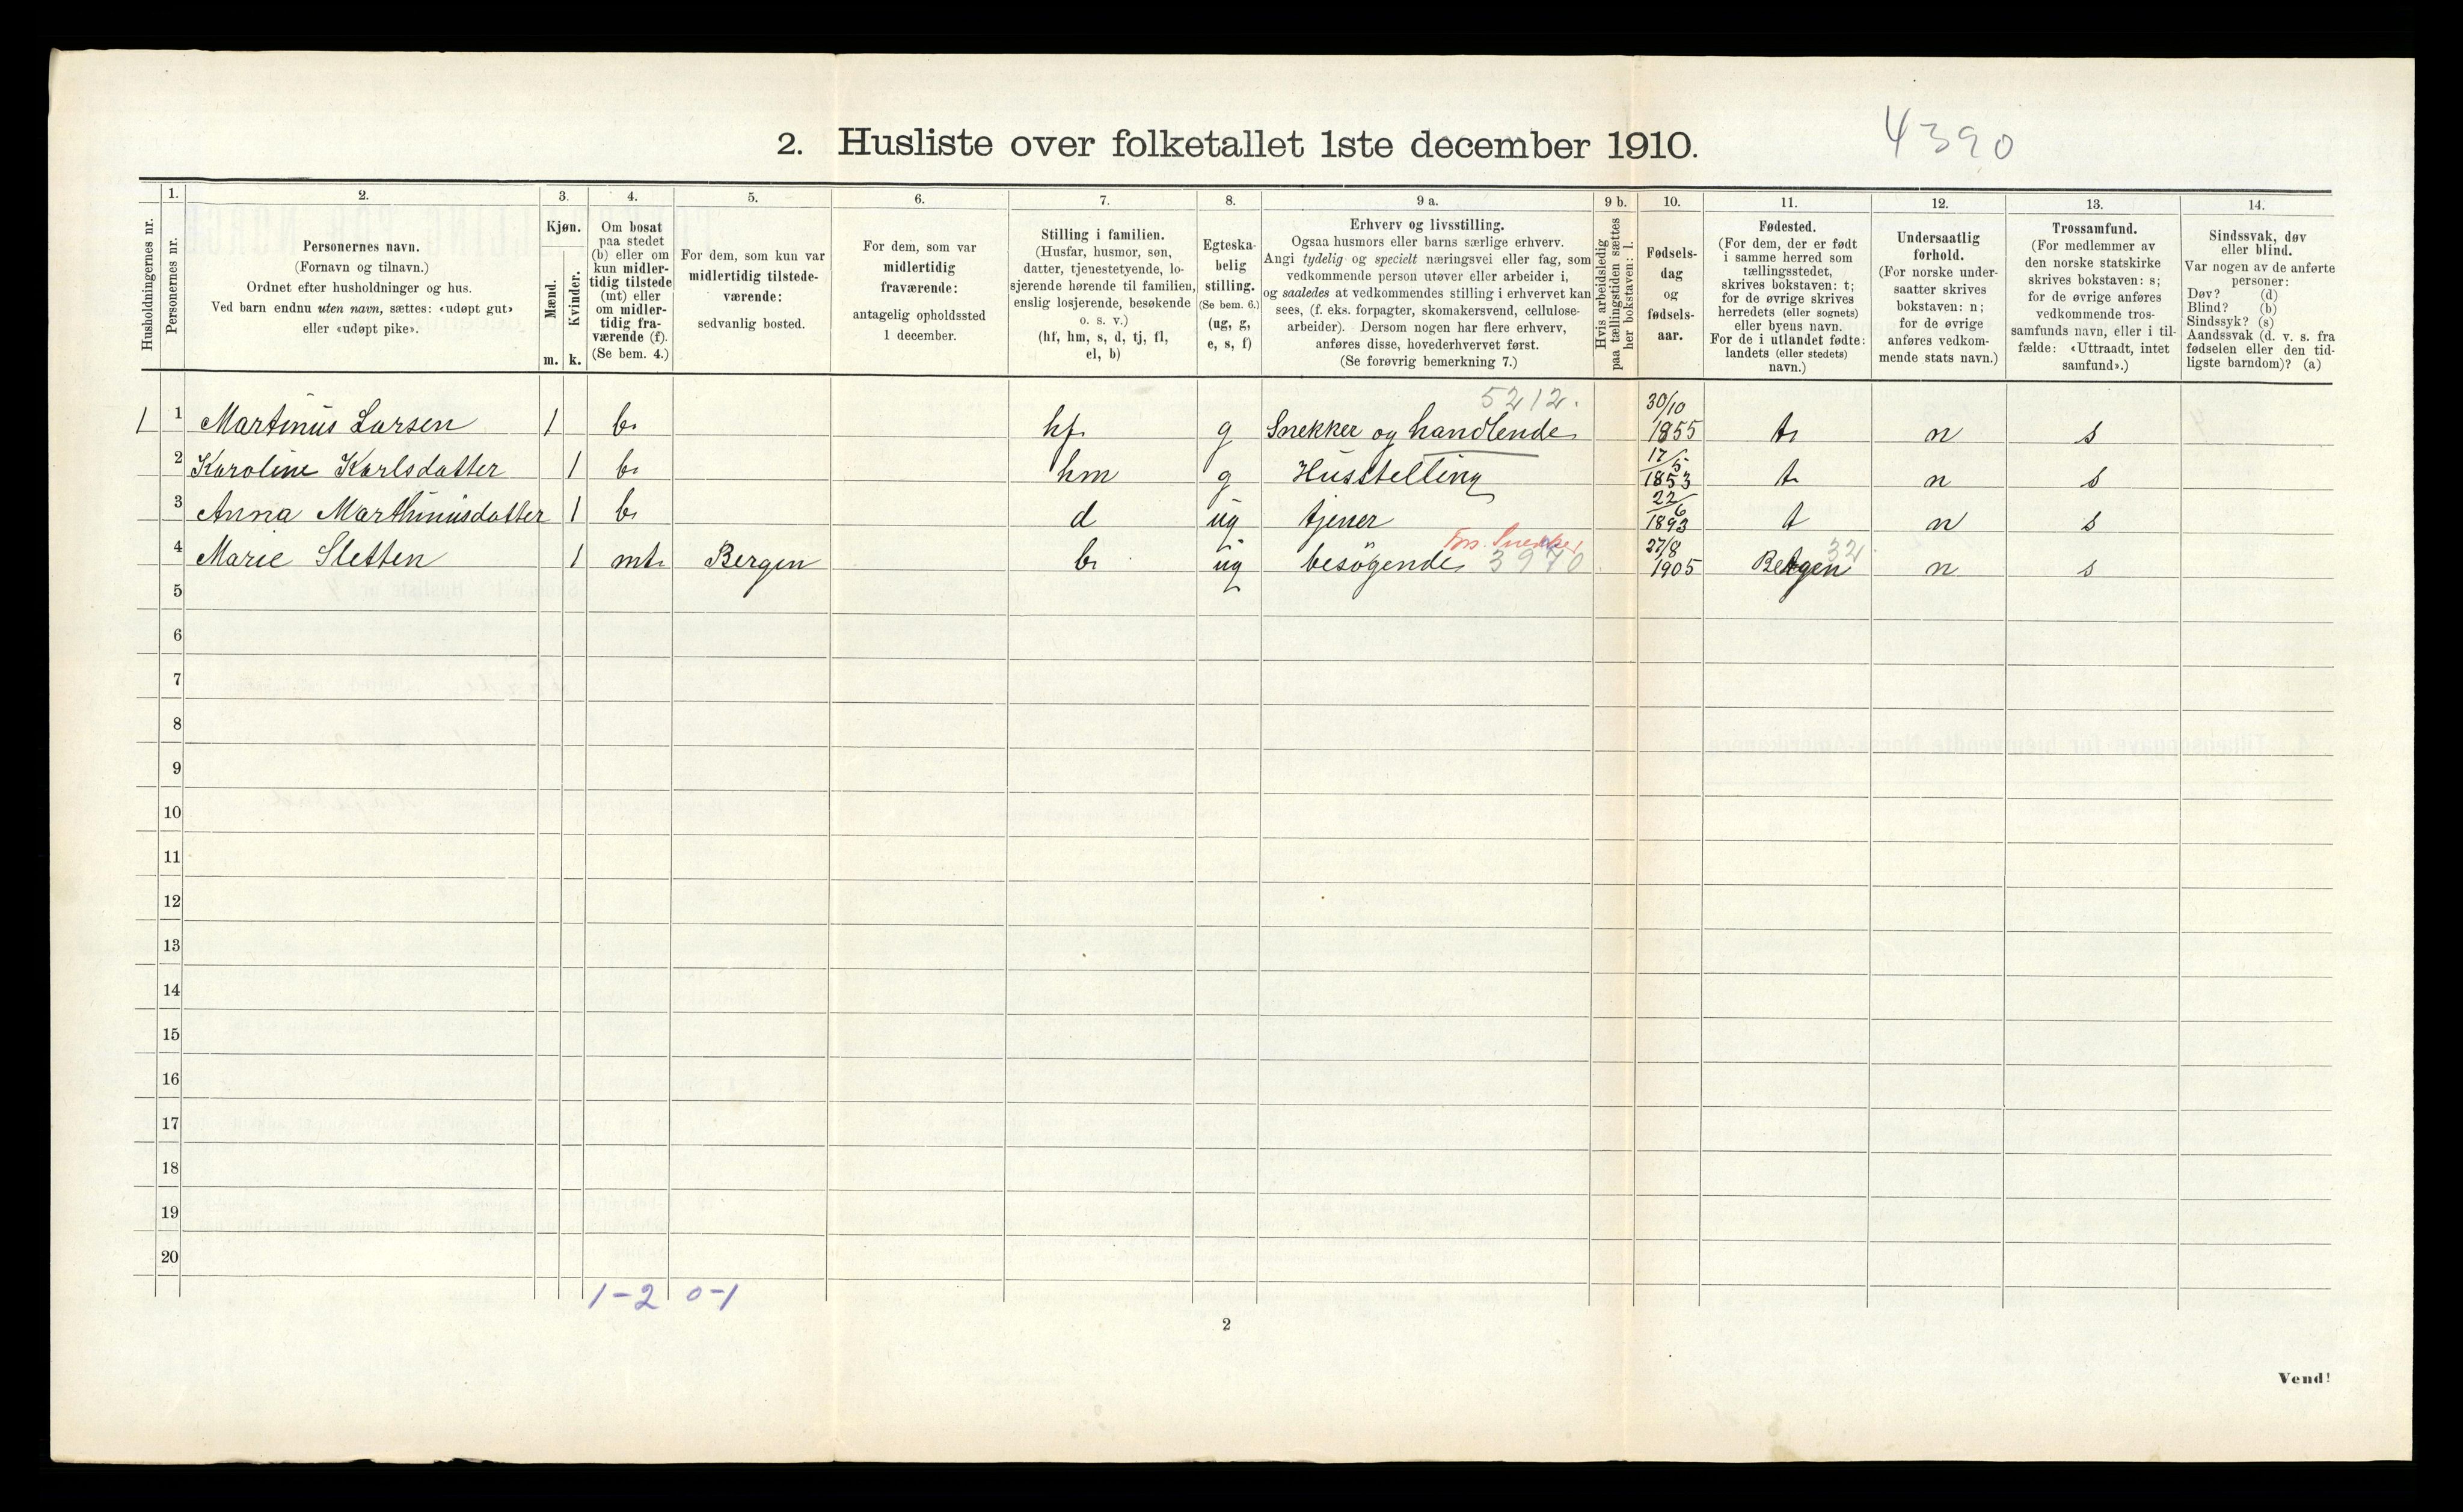 4390
2. Husliste over folketallet 1ste december 1910.
Husholdningernes nr.
1.
Personernes nr.
2.
Personernes navn.
(Fornavn og tilnavn.)
Ordnet efter husholdninger og hus.
Ved barn endnu uten navn, sættes: «udøpt gut»
eller «udøpt pike».
3.
Kjøn.
Mænd.
m.
Kvinder.
k.
4.
Om bosat
paa stedet
(b) eller om
kun midler-
tidig tilstede
(mt) eller
om midler-
tidig fra-
værende (f).
(Se bem. 4.)
5.
For dem, som kun var
midlertidig tilstede-
værende:
sedvanlig bosted.
6.
For dem, som var
midlertidig
fraværende:
antagelig opholdssted
1 december.
7.
Stilling i familien.
(Husfar, husmor, søn,
datter, tjenestetyende, lo-
sjerende hørende til familien,
enslig losjerende, besøkende
o. s. v.)
(hf, hm, s, d, tj, fl,
el, b)
8.
Egteska-
belig
stilling.
(Se bem. 6.)
(ug, g,
e, s, f)
9 a.
Erhverv og livsstilling.
Ogsaa husmors eller barns særlige erhverv.
Angi tydelig og specielt næringsvei eller fag, som
vedkommende person utøver eller arbeider i,
og saaledes at vedkommendes stilling i erhvervet kan
sees, (f. eks. forpagter, skomakersvend, cellulose-
arbeider). Dersom nogen har flere erhverv,
anføres disse, hovederhvervet først.
(Se forøvrig bemerkning 7.)
9 b.
Hvis arbeidsledig
paa tællingstiden sættes
her bokstaven: l.
10.
Fødsels-
dag
og
fødsels-
aar.
11.
Fødested.
(For dem, der er født
i samme herred som
tællingsstedet,
skrives bokstaven: t;
for de øvrige skrives
herredets (eller sognets)
eller byens navn.
For de i utlandet fødte:
landets (eller stedets)
navn.)
12.
Undersaatlig
forhold.
(For norske under-
saatter skrives
bokstaven: n;
for de øvrige
anføres vedkom-
mende stats navn.)
13.
Trossamfund.
(For medlemmer av
den norske statskirke
skrives bokstaven: s;
for de øvrige anføres
vedkommende tros-
samfunds navn, eller i til-
fælde: «Uttraadt, intet
samfund».)
14.
Sindssvak, døv
eller blind.
Var nogen av de anførte
personer:
Døv? (d)
Blind? (b)
Sindssyk? (s)
Aandssvak (d. v. s. fra
fødselen eller den tid-
ligste barndom)? (a)
5212.
1 1 Martinus Larsen 1 b. hf. g Snekker og handlende 30/10 1855 t. n s
2 Karoline Karlsdatter 1 b. hm g Husstelling 17/5 1853 t. n s
3 Anna Marthinusdatter 1 b. d ug tjener 22/6 1893 t n s
Fors. Snekker
4 Marie Sletten 1 mt. Bergen b. ug besøgende 3970 27/8 1905 Bergen 32 n s
5
6
7
8
9
10
11
12
13
14
15
16
17
18
19
20
1-2 0-1
2
Vend!